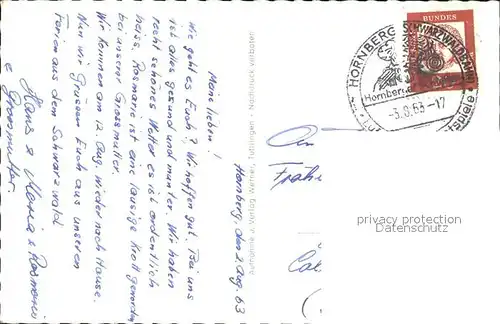 Hornberg, den 2. Aug. 63
Meine Lieben!
Wie geht es Euch? Wir hoffen gut. Bei uns
ist alles gesund und munter. Wir haben
recht schönes Wetter es ist ordentlich
heiss. Rosmarie ist eine lausige Krott geworden
bei unserer Grossmutter.
Wir kommen am 12. Aug. wieder nach Hause.
Nun wir Grüssen Euch aus unseren
Ferien aus dem Schwarzwald
Hans u Maria u Rosmarie
u Grossmutter.
Aufnahme u. Verlag Metner, Tuttlingen - Nachdruck verboten
BUNDES
HORNBERG SCHWARZWALDBAHN
Hornberger
-3.8.63-17
An
privacy protection
Datenschutz